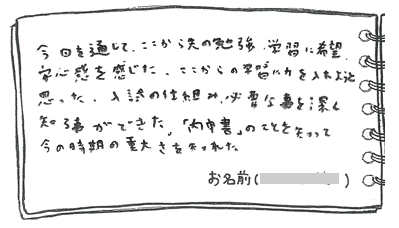 今日を通して、ここから先の勉強、学習に希望、
安心感を感じた。ここからの学習に力を入れようと
思った。入試の仕組み、必要な事を深く
知る事ができた。「内申書」のことを知って
今の時期の重大さを知れた
お名前( )